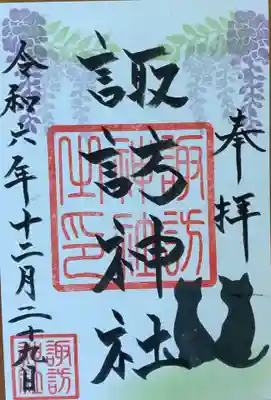 奉拝
諏訪神社
諏訪神社之印
令和六年十二月二十九日
諏訪神社